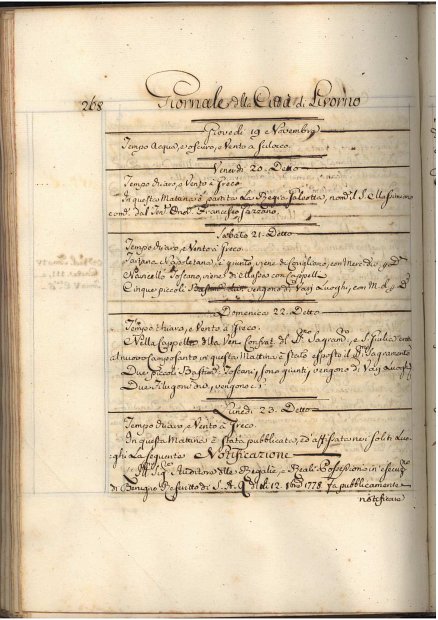 268 Giornale della Città di Livorno
Giovedì 19 Novembre
Tempo Acqua, e oscuro, e Vento a Scilocco.
Venerdì 20. Detto
Tempo chiaro, e Vento à Greco.
In questa Mattina è partita La Regia Galeotta, nom. il S.
com. dal Ten. Francesco
Sabato 21. Detto
Tempo chiaro, e Vento à Greco.
Tartana Napoletana, è giunta, viene di Corigliano, con Merc.
Navicello Toscano, viene di
Cinque piccoli Bastim. vengono da Varj Luoghi, con M.
Domenica 22. Detto
Tempo chiaro, e Vento à Greco.
Nella Cappella della Ven. Confrat. del SS. Sagram. e S. Giulia
al nuovo Campo Santo in questa Mattina è stato esposto il SS. Sagramento
Due piccoli Bastim. Toscani, sono giunti, vengono da Varj Luoghi
Due vengono
Lunedì 23. Detto
Tempo chiaro, e Vento à Greco.
In questa Mattina è stata pubblicata, ed affissa nei soliti Luo-
ghi La seguente Notificazione
Auditore delle Regalie, e Reali Possessioni in esecuz.
di Benigno Rescritto di S. A. R. de dì 12. 1778. fa pubblicamente
notificare